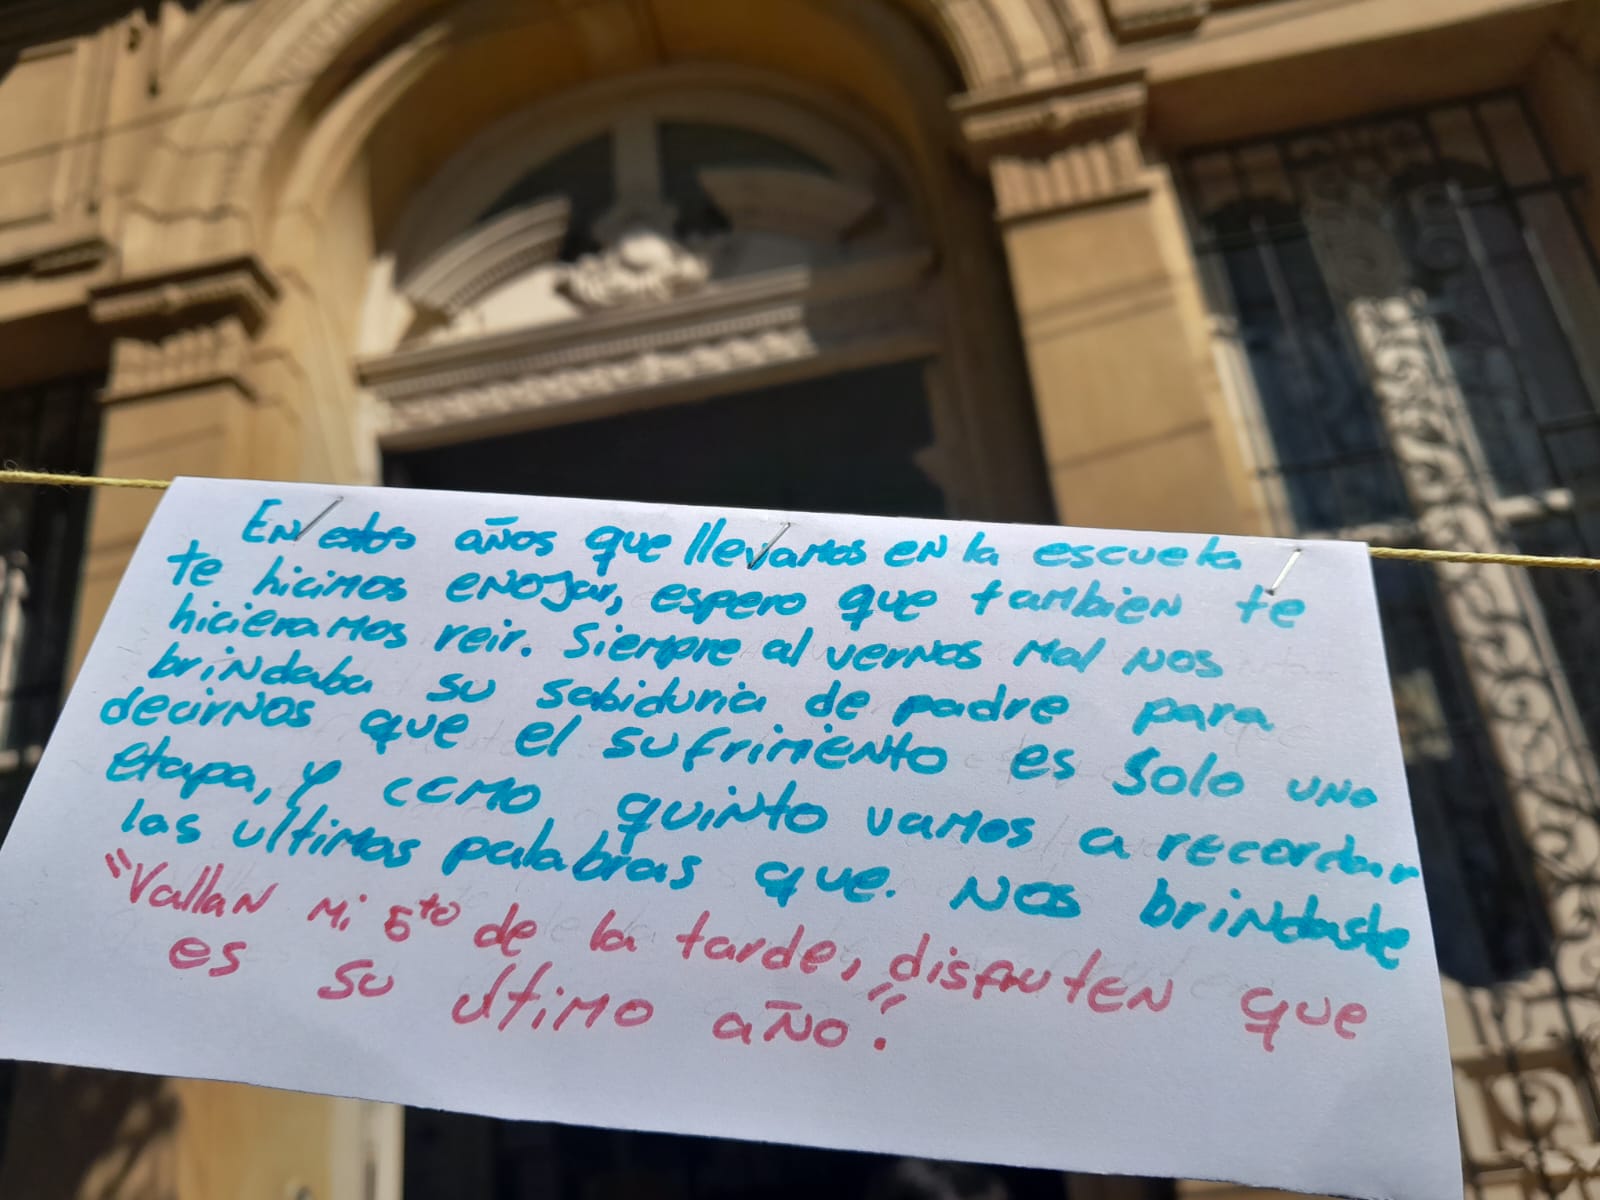 En estos años que llevamos en la escuela
te hicimos enojar, espero que tambien te
hicieramos reir. Siempre al vernos mal nos
brindaba su sabiduria de padre para
decirnos que el sufrimiento es solo una
etapa, y como quinto vamos a recordar
las ultimas palabras que. nos brindaste
"Vallan mi 5to de la tarde, disfruten que
es su ultimo año."